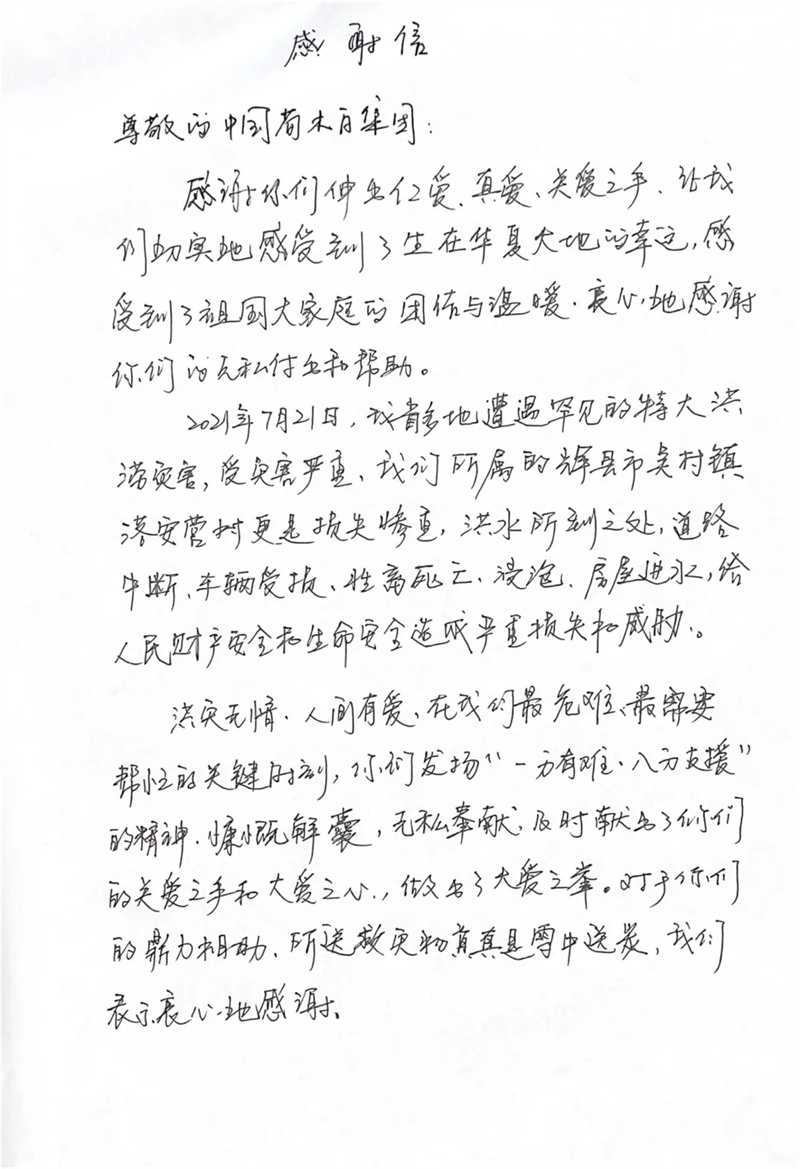 感谢信
尊敬的中国尚木月集团：
感谢你们伸出仁爱、真爱、关爱之手、让我
们切实地感受到了生在华夏大地的幸运，感
受到了祖国大家庭的团结与温暖.衷心地感谢
你们的无私付出和帮助。
2021年7月21日，我省多地遭遇罕见的特大洪
涝灾害，受灾害严重、我们所属的辉县市吴村镇
落安营村更是损失惨重，洪水所到之处，道路
中断、车辆受损、牲畜死亡、浸泡、房屋进水，给
人民财产安全和生命安全造成严重损失和威胁.。
洪灾无情.人间有爱、在我们最危难、最需要
帮忙的关键时刻，你们发扬“一方有难.八方支援”
的精神.慷慨解囊，无私奉献、及时献出了你们
的关爱之手和大爱之心，做出了大爱之举。对于你们
的鼎力相助、所送救灾物资真是雪中送炭，我们
表示衷心地感谢、